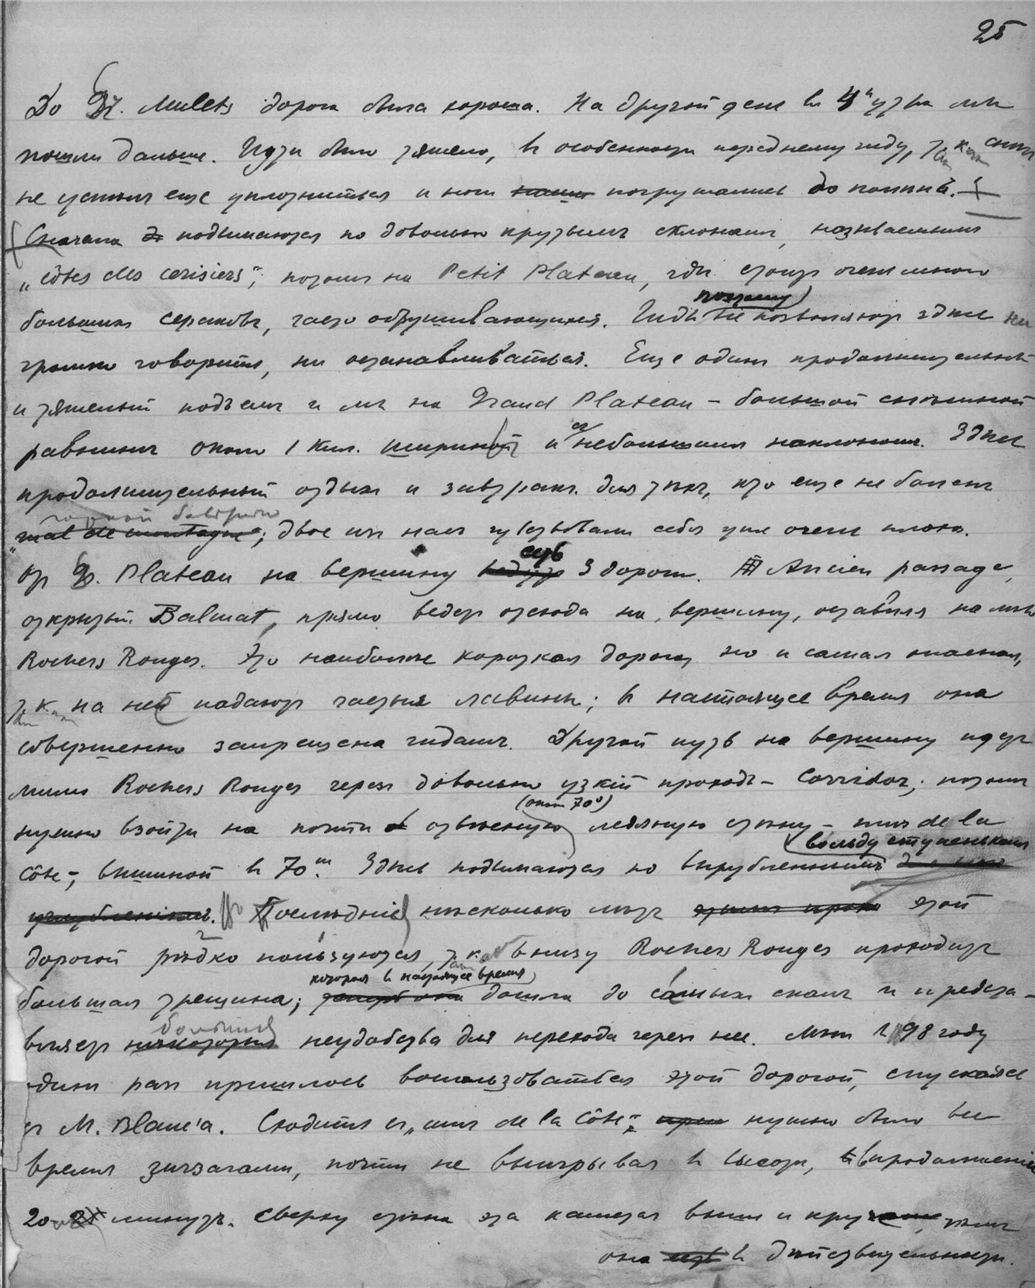 25
До Gr. Mulets дорога была хороша. На другой день в 4 утра мы
пошли дальше. Идти было тяжело, в особенности переднему гиду, так как снег
не успел еще уплотниться и ноги погружались до колен.
Сначала подымаются по довольно крутым склонам, называемым
„côtes des cerisiers“; потом на Petit Plateau, где стоит очень много
больших сераков, часто обрушивающихся. Гиды поэтому не позволяют здесь ни
громко говорить, ни останавливаться. Еще один продолжительный
и тяжелый подъем и мы на Grand Plateau – большой снежной
равнине около 1 кил. шириной и с небольшим наклоном. Здесь
продолжительный отдых и завтрак для тех, кто еще не болен
горной болезнью; двое из нас чувствовали себя уже очень плохо.
От Gr. Plateau на вершину суть 3 дороги. Ancien passage,
открытый Balmat, прямо ведет отсюда на вершину, оставляя налево
Rochers Rouges. Это наиболее короткая дорога, но и самая опасная,
т. к. на ней падают частые лавины; в настоящее время она
совершенно запрещена гидам. Другой путь на вершину идет
мимо Rochers Rouges через довольно узкий проход – Corridor; потом
нужно взойти на почти отвесную (около 70°) ледяную стену – mur de la
côte –, вышиной в 70 m. Здесь подымаются по вырубленным во льду ступенькам
Последние несколько лет этой
дорогой редко пользуются, т. как внизу Rochers Rouges проходит
большая трещина; которая в настоящее время дошла до самых скал и представ-
вляет большие неудобства для перехода через нее. Мне в 98 году
один раз пришлось воспользоваться этой дорогой, спускаясь
с M. Blanc'а. Сходить с „mur de la Côte“ нужно было все
время зигзагами, почти не выигрывая в высоте, в продолжении
20 минут. Сверху стена эта кажется выше и круче, чем
она в действительности.